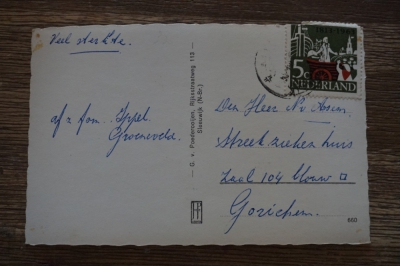 Veel sterkte.
afz fam. Ippel
Groeneveld.
G. v. Poederooijen, Rijksstraatweg 113
Sleeuwijk (N-Br.)
5c
NEDERLAND
Den Heer
Streekziekenhuis
Zaal 104
Gorichem.
600